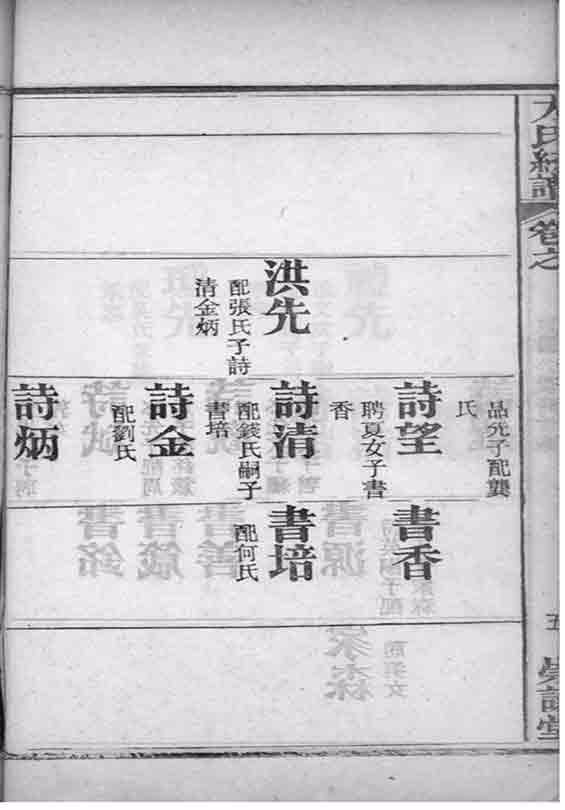 卷之
五
洪先
配張氏子詩
清金炳
品先子配龔
氏
詩望
聘夏女子書
香
詩清
配錢氏嗣子
書培
詩金
配劉氏
詩炳
書香
書培
配何氏